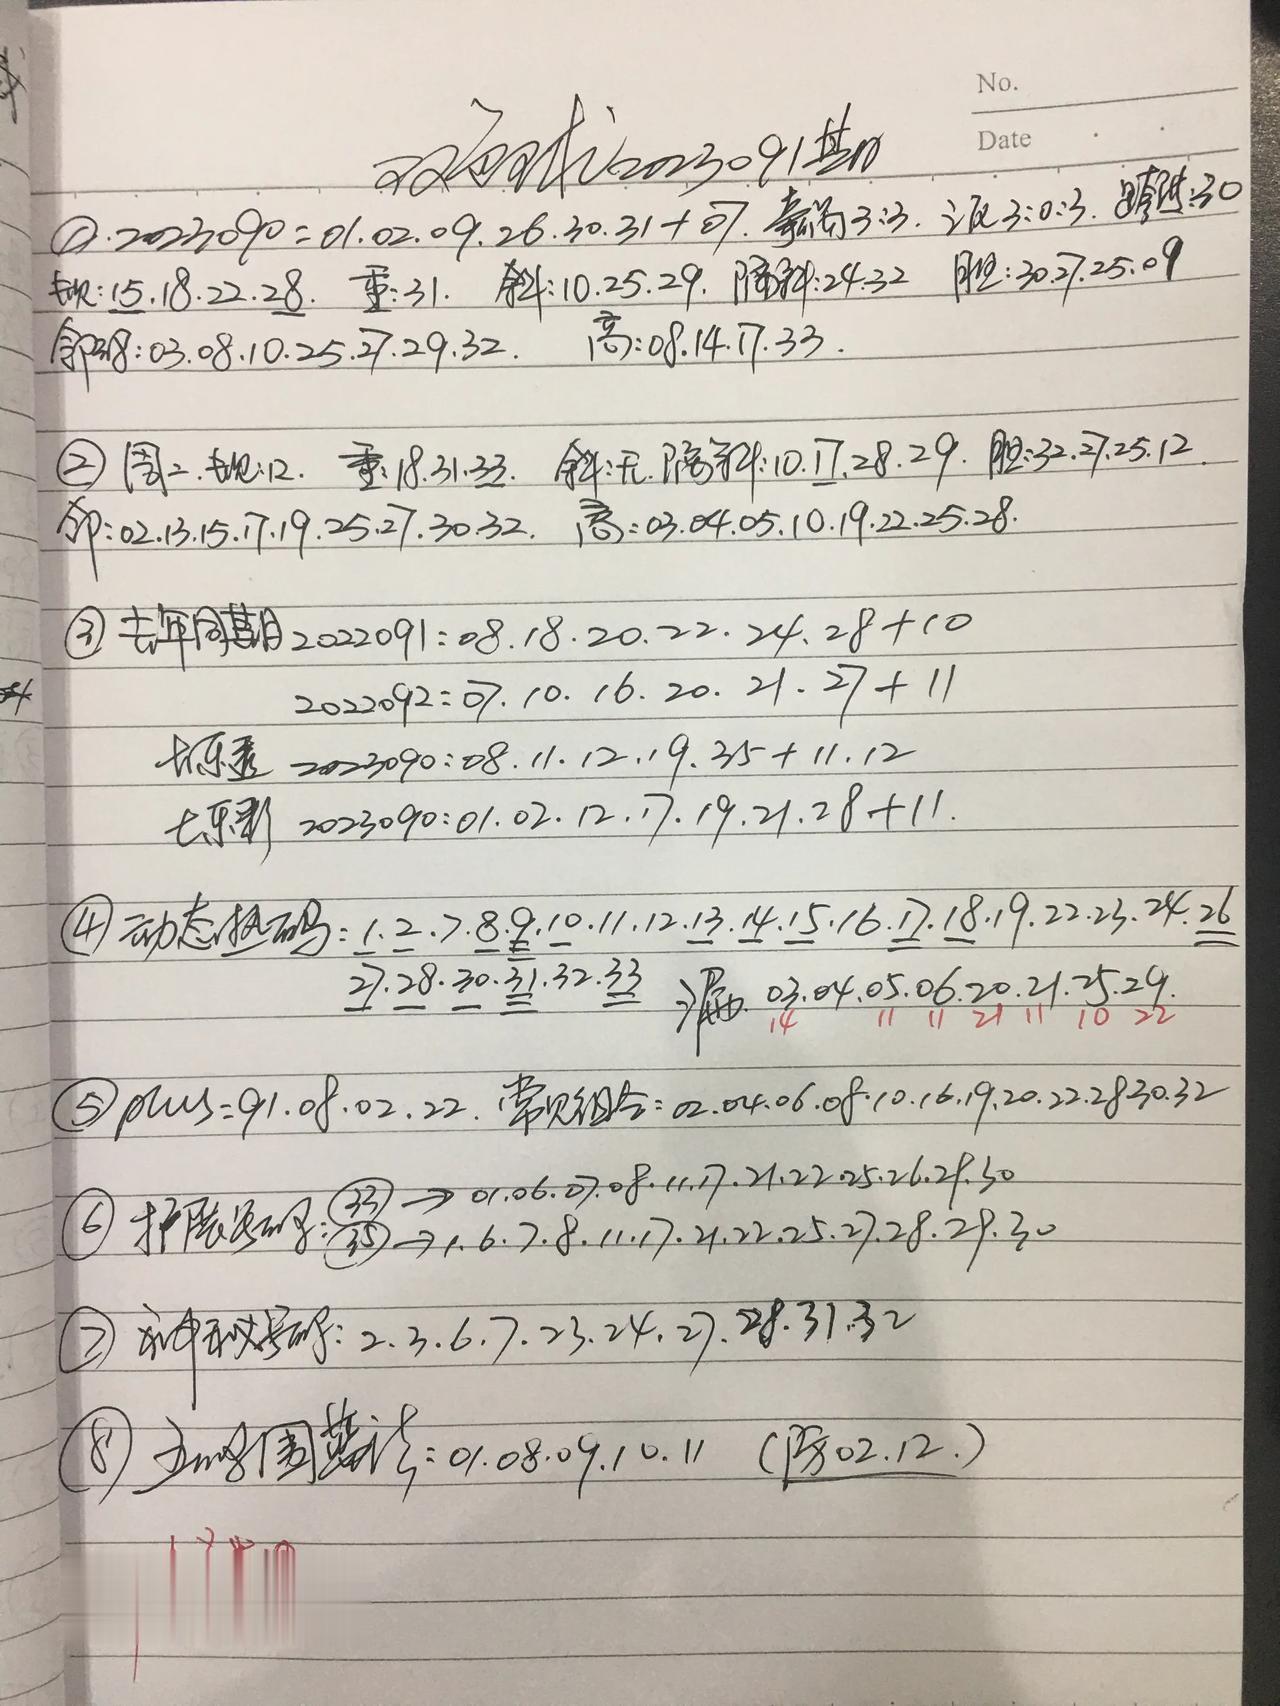 No.
Date
双色球2023091期
①.2023090=01.02.09.26.30.31+07. 奇偶3:3. 三区3:0:3. 跨:30
规:15.18.22.28. 重:31. 斜:10.25.29. 隔斜:24.32 胆:30.27.25.09
邻码:03.08.10.25.27.29.32. 高:08.14.17.33.
② 周二.规:12. 重:18.31.33. 斜:无.隔斜:10.17.28.29. 胆:32.27.25.12.
邻:02.13.15.17.19.25.27.30.32. 高:03.04.05.10.19.22.25.28.
③ 去年同期2022091:08.18.20.22.24.28+10
2022092:07.10.16.20.21.27+11
大乐透 2023090:08.11.12.19.35+11.12
七乐彩 2023090:01.02.12.17.19.21.28+11.
④ 动态热码:1.2.7.8.9.10.11.12.13.14.15.16.17.18.19.22.23.24.26
27.28.30.31.32.33 漏. 03.04.05.06.20.21.25.29.
14 11 11 21 11 10 22
⑤ plus=91.08.02.22. 常见组合:02.04.06.08.10.16.19.20.22.28.30.32
⑥ 扩展号码:㉝→01.06.07.08.11.17.21.22.25.26.29.30
㉟→1.6.7.8.11.17.21.22.25.27.28.29.30
⑦ 神秘号码:2.3.6.7.23.24.27.28.31.32
⑧ 五码围蓝法:01.08.09.10.11 (防02.12.)